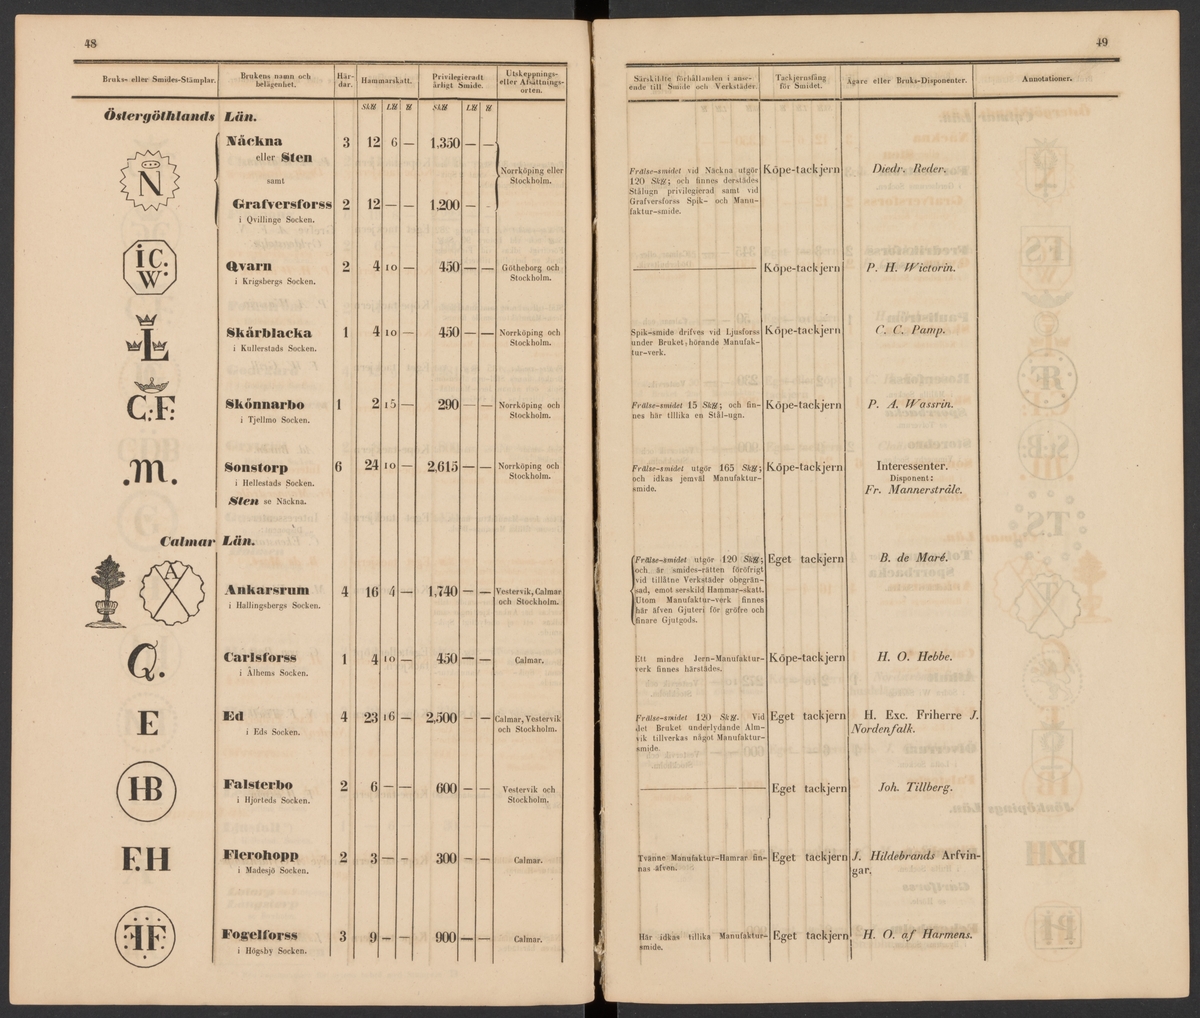 48
Bruks- eller Smides-Stämplar.
Brukens namn och
belägenhet.
Här-
dar.
Hammarskatt.
Privilegieradt
årligt Smide.
Utskeppnings-
eller Afsättnings-
orten.
Östergöthlands Län.
N
Näckna 3 12 6 — 1,350 — —
eller Sten
samt
Norrköping eller
Stockholm.
Grafversforss 2 12 — — 1,200 — —
i Qvillinge Socken.
I C.
W.
Qvarn 2 4 10 — 450 — — Götheborg och
i Krigsbergs Socken. Stockholm.
L
Skärblacka 1 4 10 — 450 — — Norrköping och
i Kullerstads Socken. Stockholm.
C:F:
Skönnarbo 1 2 15 — 290 — — Norrköping och
i Tjellmo Socken. Stockholm.
.M.
Sonstorp 6 24 10 — 2,615 — — Norrköping och
i Hellestads Socken. Stockholm.
Sten se Näckna.
Calmar Län.
A
Ankarsrum 4 16 4 — 1,740 — — Vestervik, Calmar
i Hallingsbergs Socken. och Stockholm.
Q.
Carlsforss 1 4 10 — 450 — — Calmar.
i Ålhems Socken.
E
Ed 4 23 16 — 2,500 — — Calmar, Vestervik
i Eds Socken. och Stockholm.
HB
Falsterbo 2 6 — — 600 — — Vestervik och
i Hjorteds Socken. Stockholm.
F.H
Flerohopp 2 3 — — 300 — — Calmar.
i Madesjö Socken.
FF
Fogelforss 3 9 — — 900 — — Calmar.
i Högsby Socken.
49
Särskildte förhållanden i anse-
ende till Smide och Verkstäder.
Tackjernsfång
för Smidet.
Ägare eller Bruks-Disponenter.
Annotationer.
Frälse-smidet vid Näckna utgör
120 Sk℔; och finnes derstädes
Stålugn privilegierad samt vid
Grafversforss Spik- och Manu-
faktur-smide.
Köpe-tackjern
Diedr. Reder.
Köpe-tackjern
P. H. Wictorin.
Spik-smide drifves vid Ljusforss
under Bruket hörande Manufak-
tur-verk.
Köpe-tackjern
C. C. Pamp.
Frälse-smidet 15 Sk℔; och fin-
nes här tillika en Stål-ugn.
Köpe-tackjern
P. A. Wassrin.
Frälse-smidet utgör 165 Sk℔;
och idkas jemväl Manufaktur-
smide.
Köpe-tackjern
Interessenter.
Disponent:
Fr. Mannerstråle.
Frälse-smidet utgör 120 Sk℔;
och är smides-rätten föröfrigt
vid tillåtne Verkstäder obegrän-
sad, emot serskild Hammar-skatt.
Utom Manufaktur-verk finnes
här äfven Gjuteri för gröfre och
finare Gjutgods.
Eget tackjern
B. de Maré.
Ett mindre Jern-Manufaktur-
verk finnes härstädes.
Köpe-tackjern
H. O. Hebbe.
Frälse-smidet 120 Sk℔. Vid
det Bruket underlydande Alm-
vik tillverkas något Manufaktur-
smide.
Eget tackjern
H. Exc. Friherre J.
Nordenfalk.
Eget tackjern
Joh. Tillberg.
Tvänne Manufaktur-Hamrar fin-
nas äfven.
Eget tackjern
J. Hildebrands Arfvin-
gar.
Här idkas tillika Manufaktur-
smide.
Eget tackjern
H. O. af Harmens.